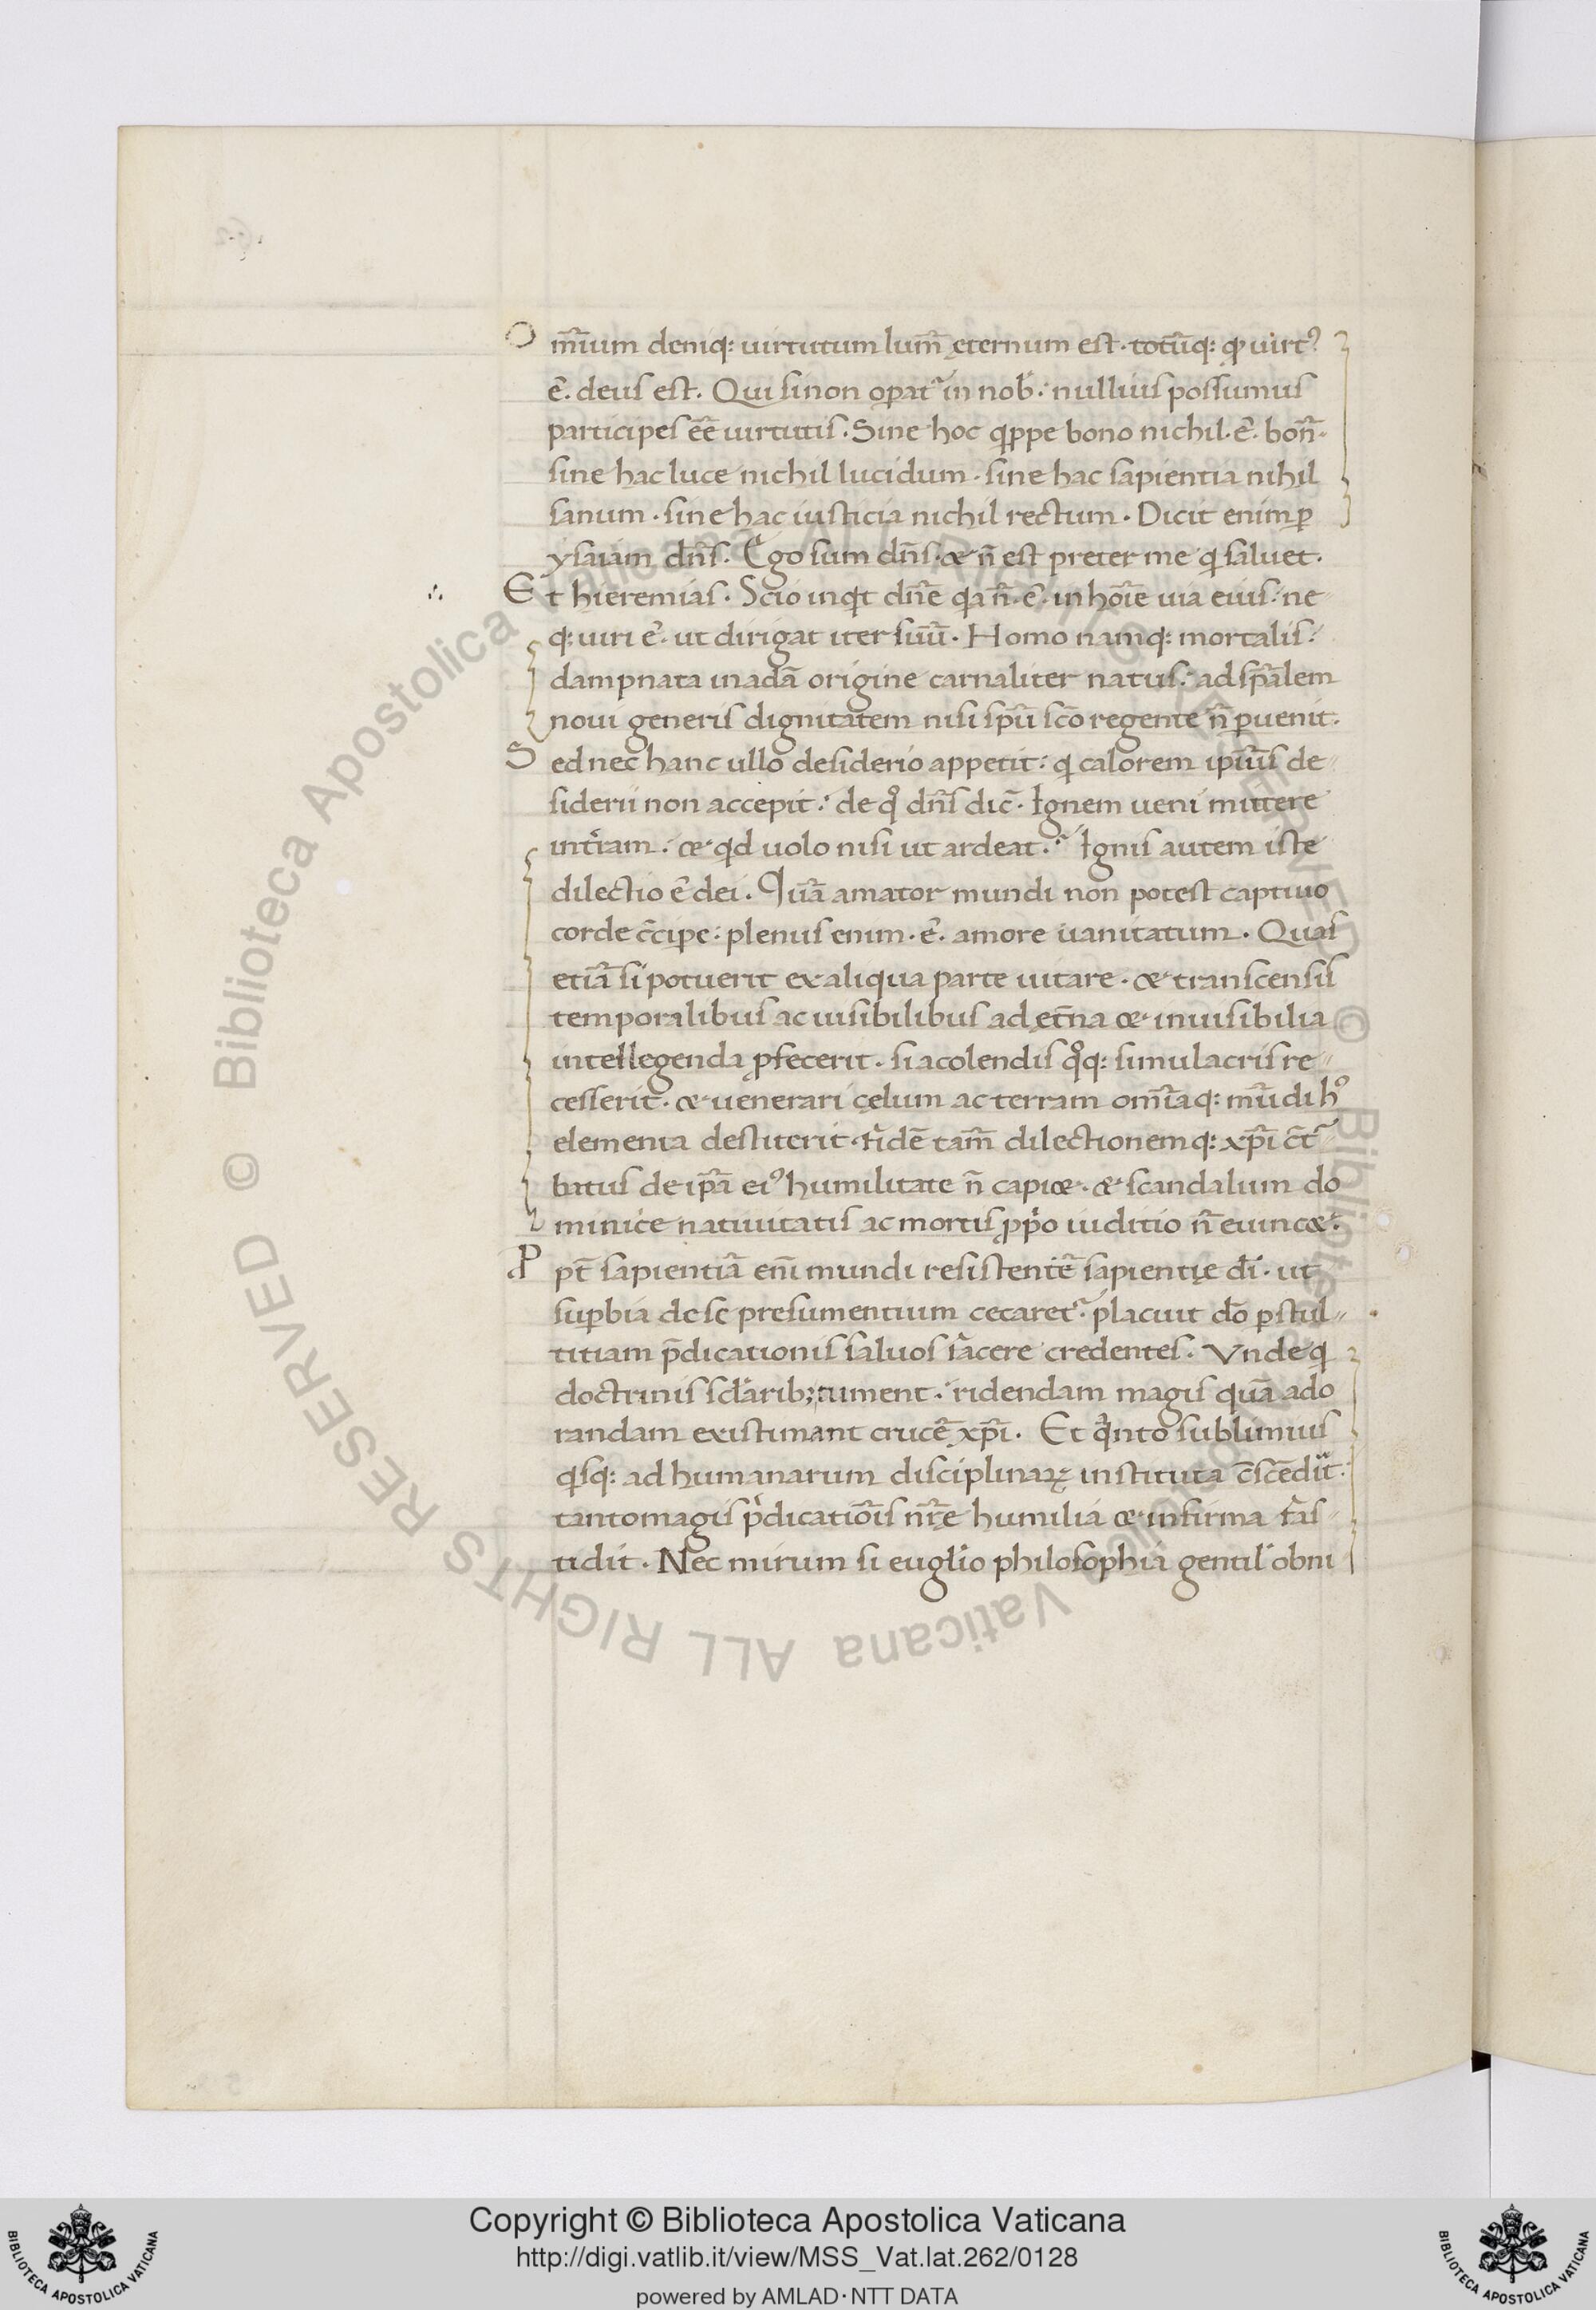 Om̅ium deniq: uirtutum lum̅ ęternum est. totu̅q: qd̕ uirtꝰ
e̅. deus est. Qui si non op̲at᷑ in nob̕: nullius possumus
participes ee̅ uirtutis. Sine hoc q̕ppe bono nichil .e̅. bon̅.
sine hac luce nichil lucidum. sine hac sapientia nihil
sanum. sine hac iusticia nichil rectum. Dicit enim p̲
ysaiam dn̅s. Ego sum dn̅s. & n̅ est preter me q̕ saluet.
Et hieremias. Scio inq̕t dn̅e q̕a n̅ .e̅. in ho̅ie uia eius: ne
q: uiri e̅. ut dirigat iter suu̅. Homo namq: mortalis:
dampnata in ada̅ origine carnaliter natus: ad sp̅alem
noui generis dignitatem nisi sp̅u sc̅o regente n̅ p̲uenit.
Sed nec hanc ullo desiderio appetit: q̕ calorem ipsius de
siderii non accepit: de qͦ dn̅s dic̅. Ignem ueni mittere
in t̕ram: & q̕d uolo nisi ut ardeat. Ignis autem iste
dilectio e̅ dei. Qua̅ amator mundi non potest captiuo
corde c̅cipe: plenus enim .e̅. amore uanitatum. Quas
etia̅ si potuerit ex aliqua parte uitare. & transcensis
temporalibus ac uisibilibus ad ęt̅na & inuisibilia
intellegenda ꝓfecerit. si a colendis qͦq: simulacris re
cesserit. & uenerari cęlum ac terram om̅iaq: mu̅di hͦ
elementa destiterit. fide̅ tam̅ dilectionemq: xp̅i c̅t᷑
batus de ip̅a eiꝰ humilitate n̅ capi&. & scandalum do
minice natiuitatis ac mortis ꝓp̕o iuditio n̅ euinc&.
Ꝓpt̅ sapientia̅ eni̅ mundi resistente̅ sapientię di̅. ut
sup̲bia de se presumentium cecaret᷑. placuit do̅ p̲ stul
titiam p̅dicationis saluos facere credentes. Vnde q̕
doctrinis sc̅larib; tument. ridendam magis qua̅ ado
randam existimant cruce̅ xp̅i. Et q̕nto sublimius
q̕sq: ad humanarum disciplinaꝝ instituta c̅sce̅dit:
tanto magis p̕dicatio̅is nr̅ę humilia & infirma fas
tidit. Nec mirum si eugl̕io philosophia gentil̕ obni
Copyright © Biblioteca Apostolica Vaticana
http://digi.vatlib.it/view/MSS_Vat.lat.262/0128
powered by AMLAD·NTT DATA
BIBLIOTECA APOSTOLICA VATICANA
BIBLIOTECA APOSTOLICA VATICANA
© Biblioteca Apostolica Vaticana ALL RIGHTS RESERVED
© Biblioteca Apostolica Vaticana ALL RIGHTS RESERVED